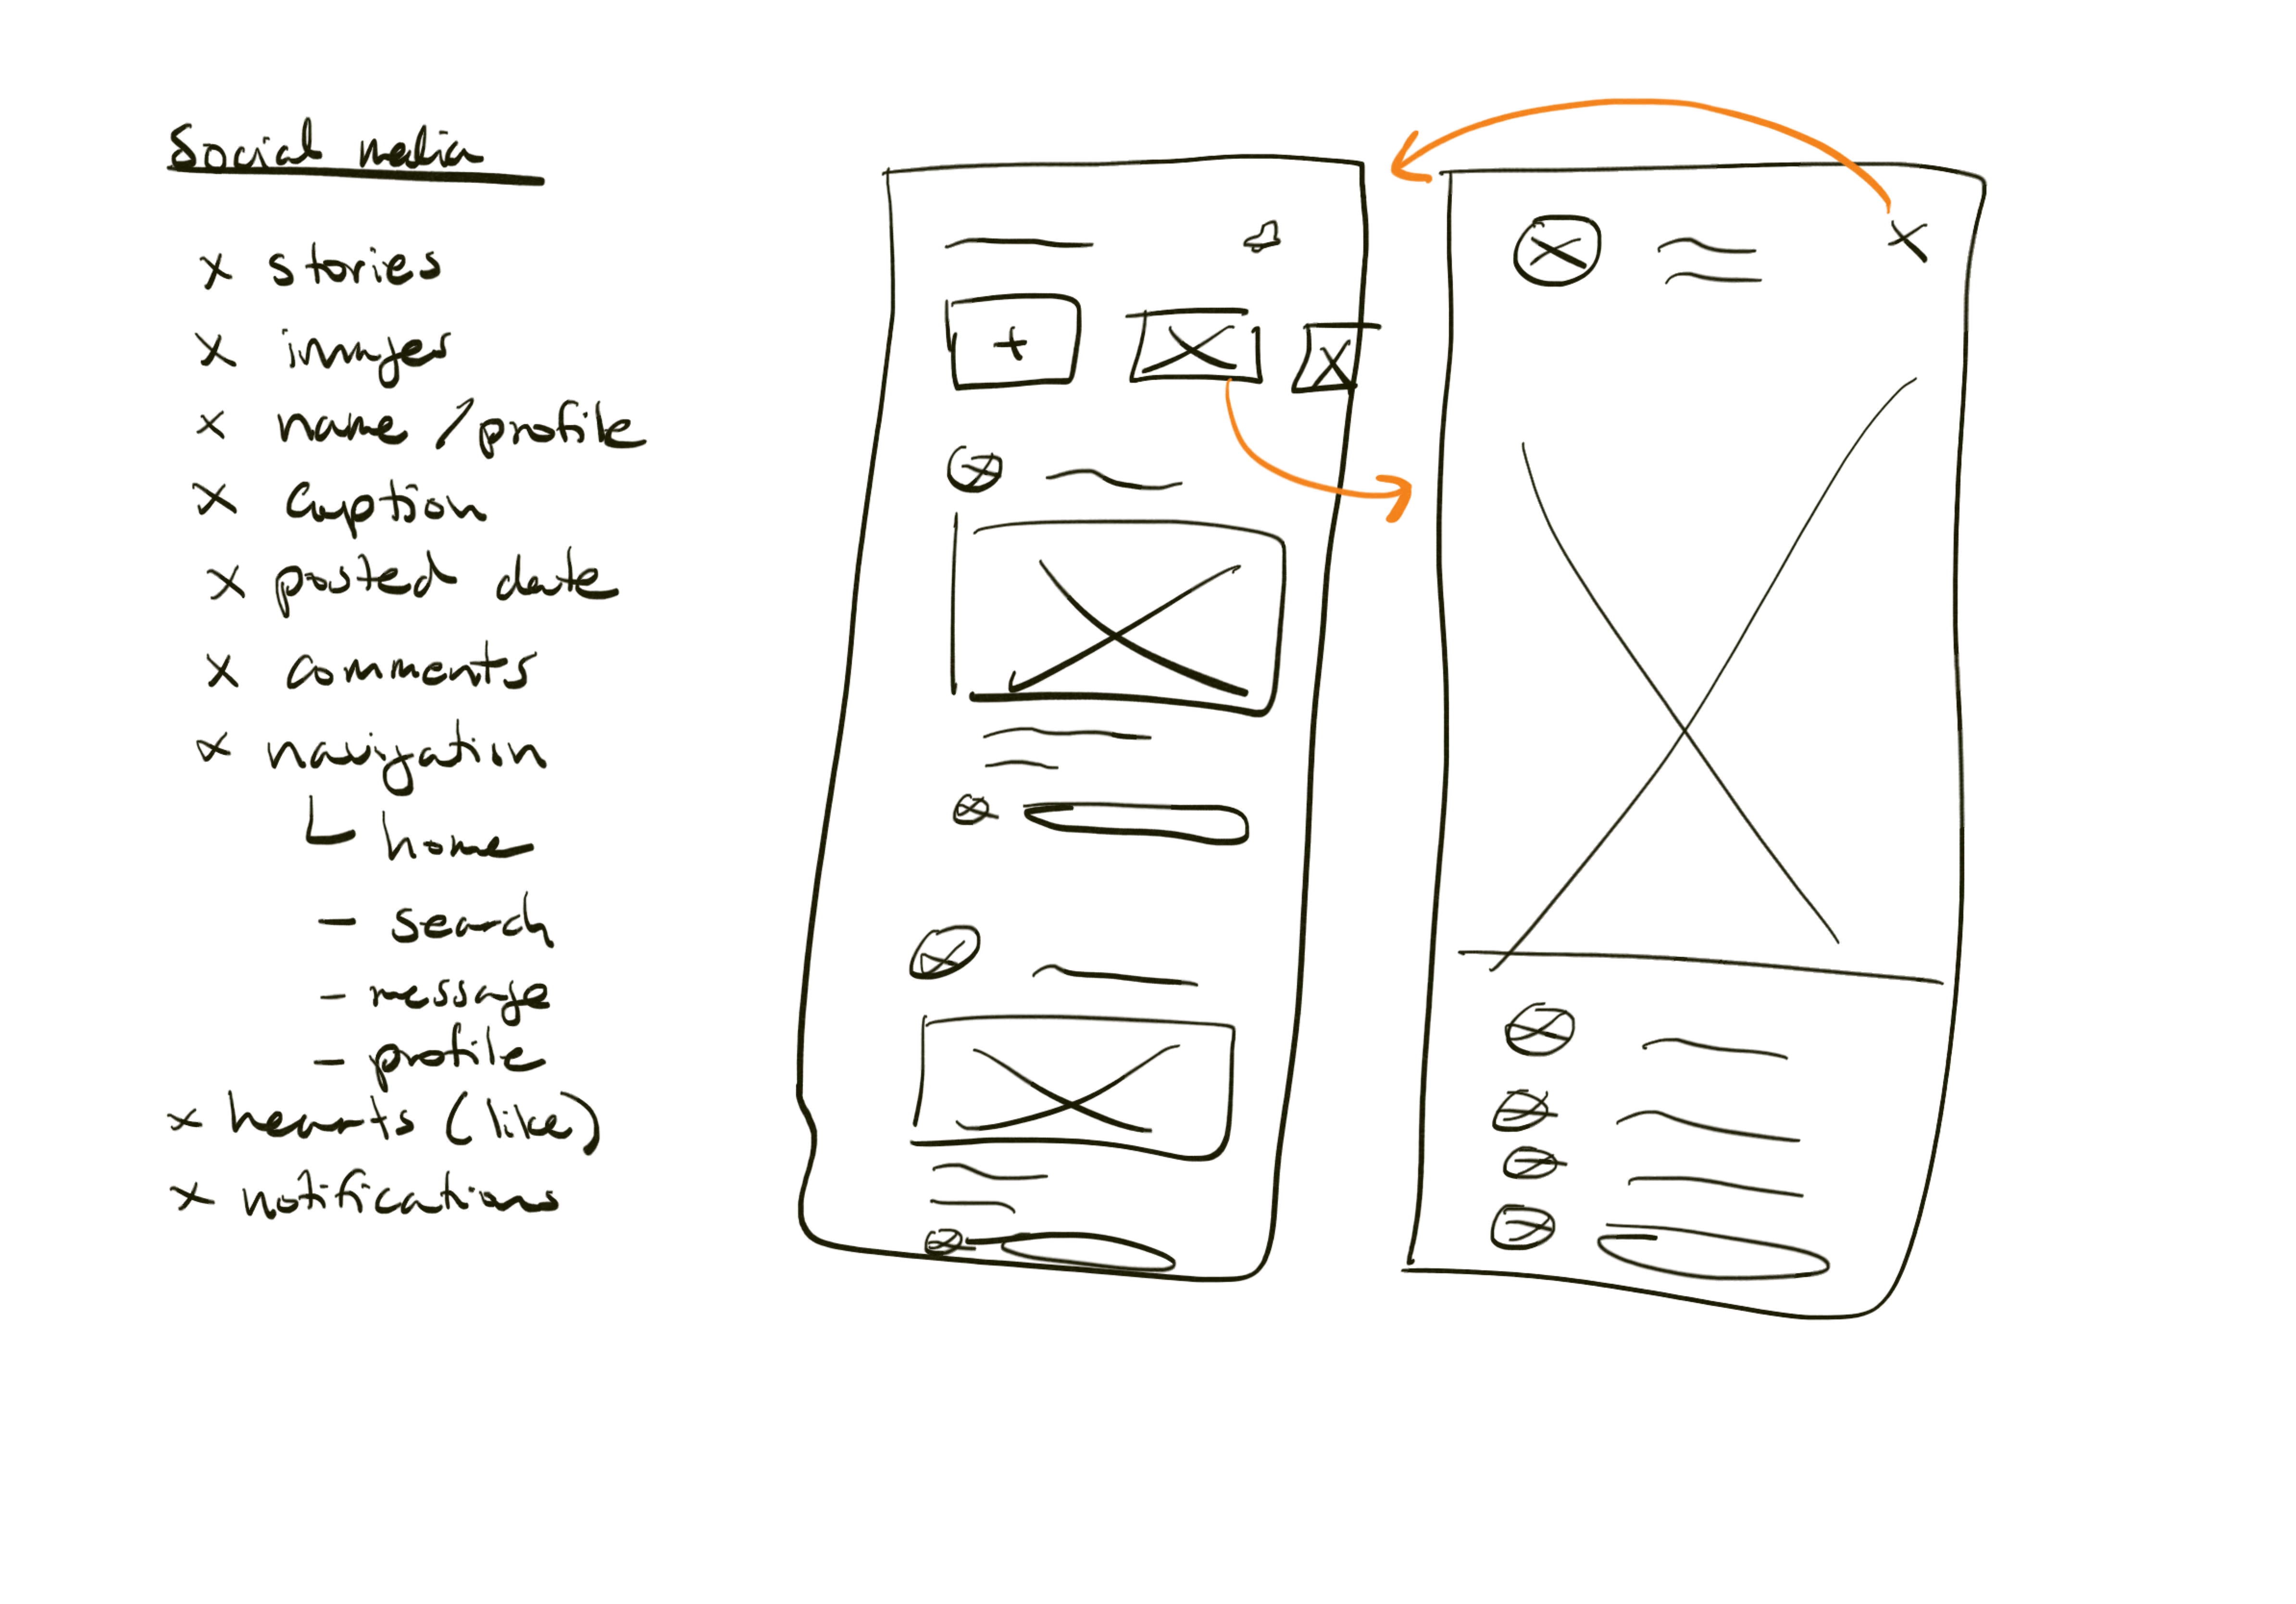 Social media
x stories
x images
x name / profile
x caption
x posted date
x comments
x navigation
home
- search
- message
- profile
x hearts (like)
x notifications